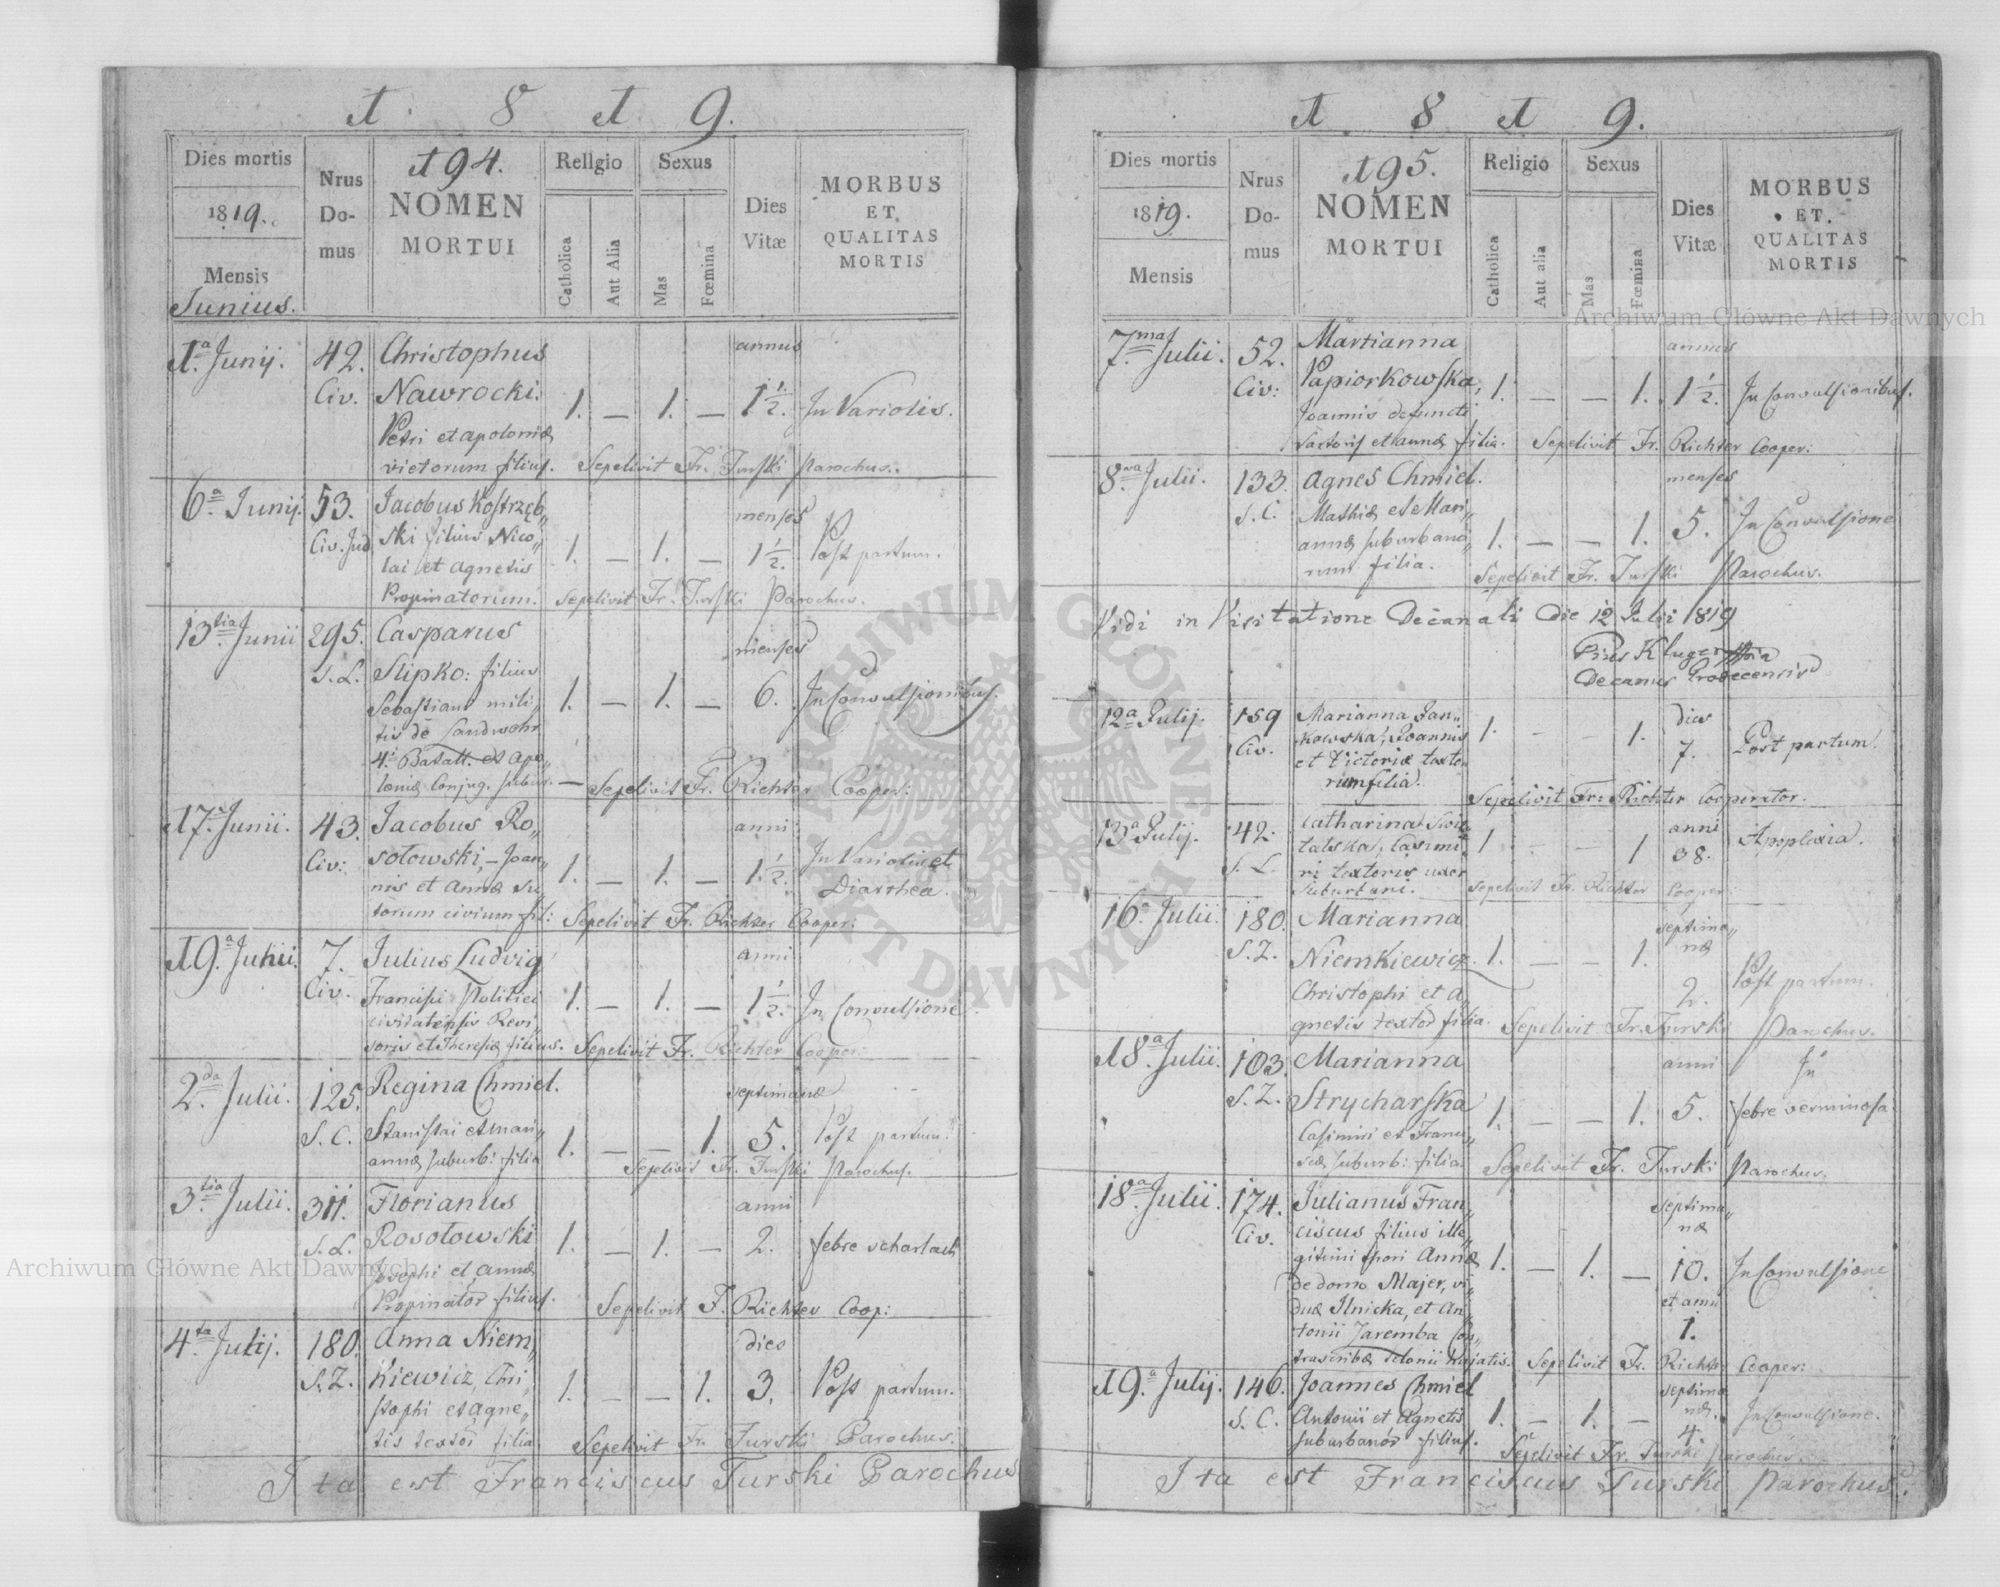 1 8 1 9.
Dies mortis
1819.
Mensis
Junius.
Nrus
Do-
mus
194.
NOMEN
MORTUI
Religio
Catholica
Aut Alia
Sexus
Mas
Fœmina
Dies
Vitæ
MORBUS
ET
QUALITAS
MORTIS
1.a Junij. 42. Christophus annus
Civ. Nawrocki. 1. — 1. — 1 1/2. In Variolis.
Petri et Apoloniæ
victorum filius. Sepelivit Fr. Turski Parochus.
6.a Junij. 53. Jacobus Kostrzęb„ menses
Civ. Jud. ski filius Nico„ 1. — 1. — 1 1/2. Post partum.
lai et Agnetis
Propinatorum. Sepelivit Fr. Turski Parochus.
13tia Junii 295. Casparus menses
S. L. Slipko: filius 1. — 1. — 6. In Convulsionibus.
Sebastiani mili„
tis de Landwehr
4.i Batall. et Apo„
loniæ Conjug. suburb. — Sepelivit Fr. Richter Cooper:
17.a Junii. 43. Jacobus Ro„ anni
Civ: sołowski, — Joan„ 1. — 1. — 1. 1/2. In Variolis et
nis et Annæ su„ Diarrhea.
torum civium fil: Sepelivit Fr. Richter Cooper:
19.a Junii. 7. Julius Ludvig anni
Civ. Francisci Politici 1. — 1. — 1 1/2. In Convulsione.
civitatensis Revi„
soris et Theresiæ filius. Sepelivit Fr. Richter Cooper:
2.da Julii. 125. Regina Chmiel. septimanæ
S. C. Stanislai et Mari„ 1. — — 1. 5. Post partum.
annæ suburb: filia Sepelivit Fr. Turski Parochus.
3.tia Julii. 311. Florianus anni
S. L. Rosołowski 1. — 1. — 2. febre scharlach
Josephi et Annæ
Propinator filius. Sepelivit F. Richter Coop:
4.ta Julij. 180. Anna Niem„ dies
S. Z. kiewicz, Chri„ 1. — — 1. 3. Post partum.
stophi et Agne„
tis textor filia. Sepelivit Fr. Turski Parochus.
Ita est Franciscus Turski Parochus
1 8 1 9.
Dies mortis
1819.
Mensis
Nrus
Do-
mus
195.
NOMEN
MORTUI
Religio
Catholica
Aut alia
Sexus
Mas
Fœmina
Dies
Vitæ
MORBUS
ET.
QUALITAS
MORTIS
7.ma Julii. 52. Marianna annus
Civ: Papiorkowska, 1. — — 1. 1 1/2. In Convulsionibus.
Joannis defuncti
Sartoris et Annæ filia. Sepelivit Fr. Richter Cooper:
8.va Julii. 133. Agnes Chmiel. menses
S. C. Mathiæ et Mari„ 1. — — 1. 5. In Convulsione
annæ suburbano„
rum filia. Sepelivit Fr. Turski Parochus.
Vidi in Visitatione Decanali Die 12 Julii 1819
Pius Kluger
Decanus Grodecensis
12a Julij. 159 Marianna Jan„ dies
Civ. kowska, Joannis 1. - - 1. 7. Post partum.
et Victoriæ texto„
rum filia. Sepelivit Fr: Richter Cooperator.
13a Julij. 42. Catharina anni
S. L. Casimi„ 1 - - 1 38. Apoplexia.
ri textoris uxor
suburbani. Sepelivit Fr. Richter Cooper:
16.a Julii. 180. Marianna septima„
S. Z. Niemkiewicz. 1. — — 1. næ
Christophi et A„ 2. Post partum.
gnetis textor filia. Sepelivit Fr. Turski Parochus.
18.a Julii. 103. Marianna anni In
S. Z. Strycharska 1. — — 1. 5. febre verminosa
Casimiri et Franci„
scæ suburb: filia. Sepelivit Fr. Turski Parochus.
18.a Julii. 174. Julianus Fran„ septima„
Civ. ciscus filius ille„ næ
gitimi thori Annæ 1. — 1. — 10. In Convulsione
de domo Majer, vi„ et anni
duæ Ilnicka, et An„ 1.
tonii Jaremba Con„
trascribæ telonii hujatis. Sepelivit Fr. Richter Cooper:
19.a Julij. 146. Joannes Chmiel septima
S. C. Antonii et Agnetis 1. — 1. — næ. In Convulsione.
suburbanor filius. 4.
Sepelivit Fr. Turski Parochus.
Ita est Franciscus Turski Parochus.
Archiwum Główne Akt Dawnych
Archiwum Główne Akt Dawnych
ARCHIWUM GŁÓWNE AKT DAWNYCH